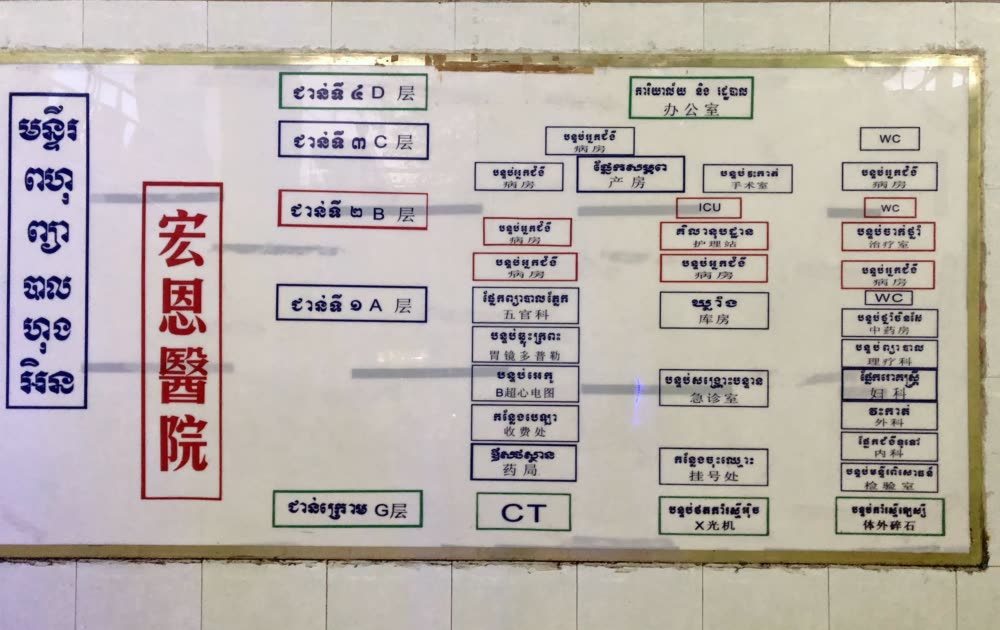 មន្ទីរ
ពហុ
ព្យា
បាល
ហុង
អិន
宏恩醫院
ជាន់ទី ៤ D 层
ការិយាល័យ និង រដ្ឋបាល
办公室
ជាន់ទី ៣ C 层
បន្ទប់អ្នកជំងឺ
病房
WC
បន្ទប់អ្នកជំងឺ
病房
ផ្នែកសម្ភព
产房
បន្ទប់វះកាត់
手术室
បន្ទប់អ្នកជំងឺ
病房
ជាន់ទី ២ B 层
ICU
WC
បន្ទប់អ្នកជំងឺ
病房
គិលានុបដ្ឋាន
护理站
បន្ទប់ចាក់ថ្នាំ
治疗室
បន្ទប់អ្នកជំងឺ
病房
បន្ទប់អ្នកជំងឺ
病房
បន្ទប់អ្នកជំងឺ
病房
ជាន់ទី ១ A 层
ផ្នែកព្យាបាលភ្នែក
五官科
ឃ្លាំង
库房
WC
បន្ទប់ថ្នាំចិនសែ
中药房
បន្ទប់ឆ្លុះក្រពះ
胃镜多普勒
បន្ទប់ព្យាបាល
理疗科
បន្ទប់អេកូ
B超心电图
បន្ទប់សង្គ្រោះបន្ទាន់
急诊室
ផ្នែករោគស្ត្រី
妇科
កន្លែងបេឡា
收费处
វះកាត់
外科
ឪសថស្ថាន
药局
កន្លែងចុះឈ្មោះ
挂号处
ផ្នែកជំងឺទូទៅ
内科
បន្ទប់មន្ទីរពិសោធន៍
检验室
ជាន់ក្រោម G层
CT
បន្ទប់ថតកាំរស្មីអ៊ិច
X光机
体外碎石